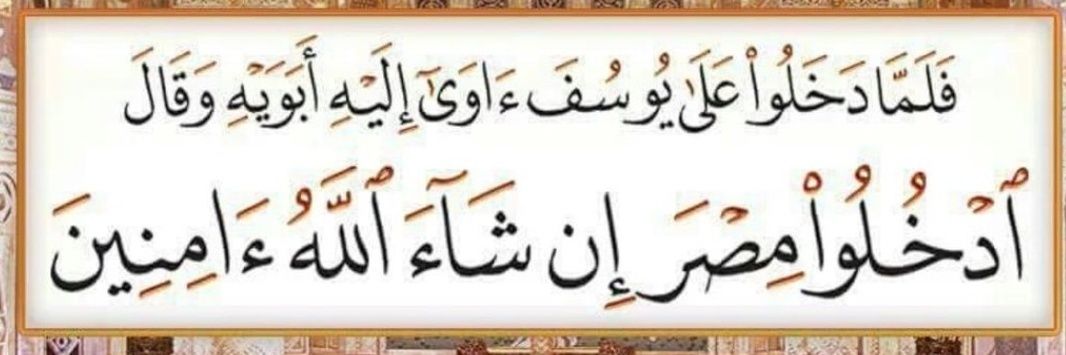 فَلَمَّا دَخَلُوا۟ عَلَىٰ يُوسُفَ ءَاوَىٰٓ إِلَيْهِ أَبَوَيْهِ وَقَالَ
ٱدْخُلُوا۟ مِصْرَ إِن شَآءَ ٱللَّهُ ءَامِنِينَ